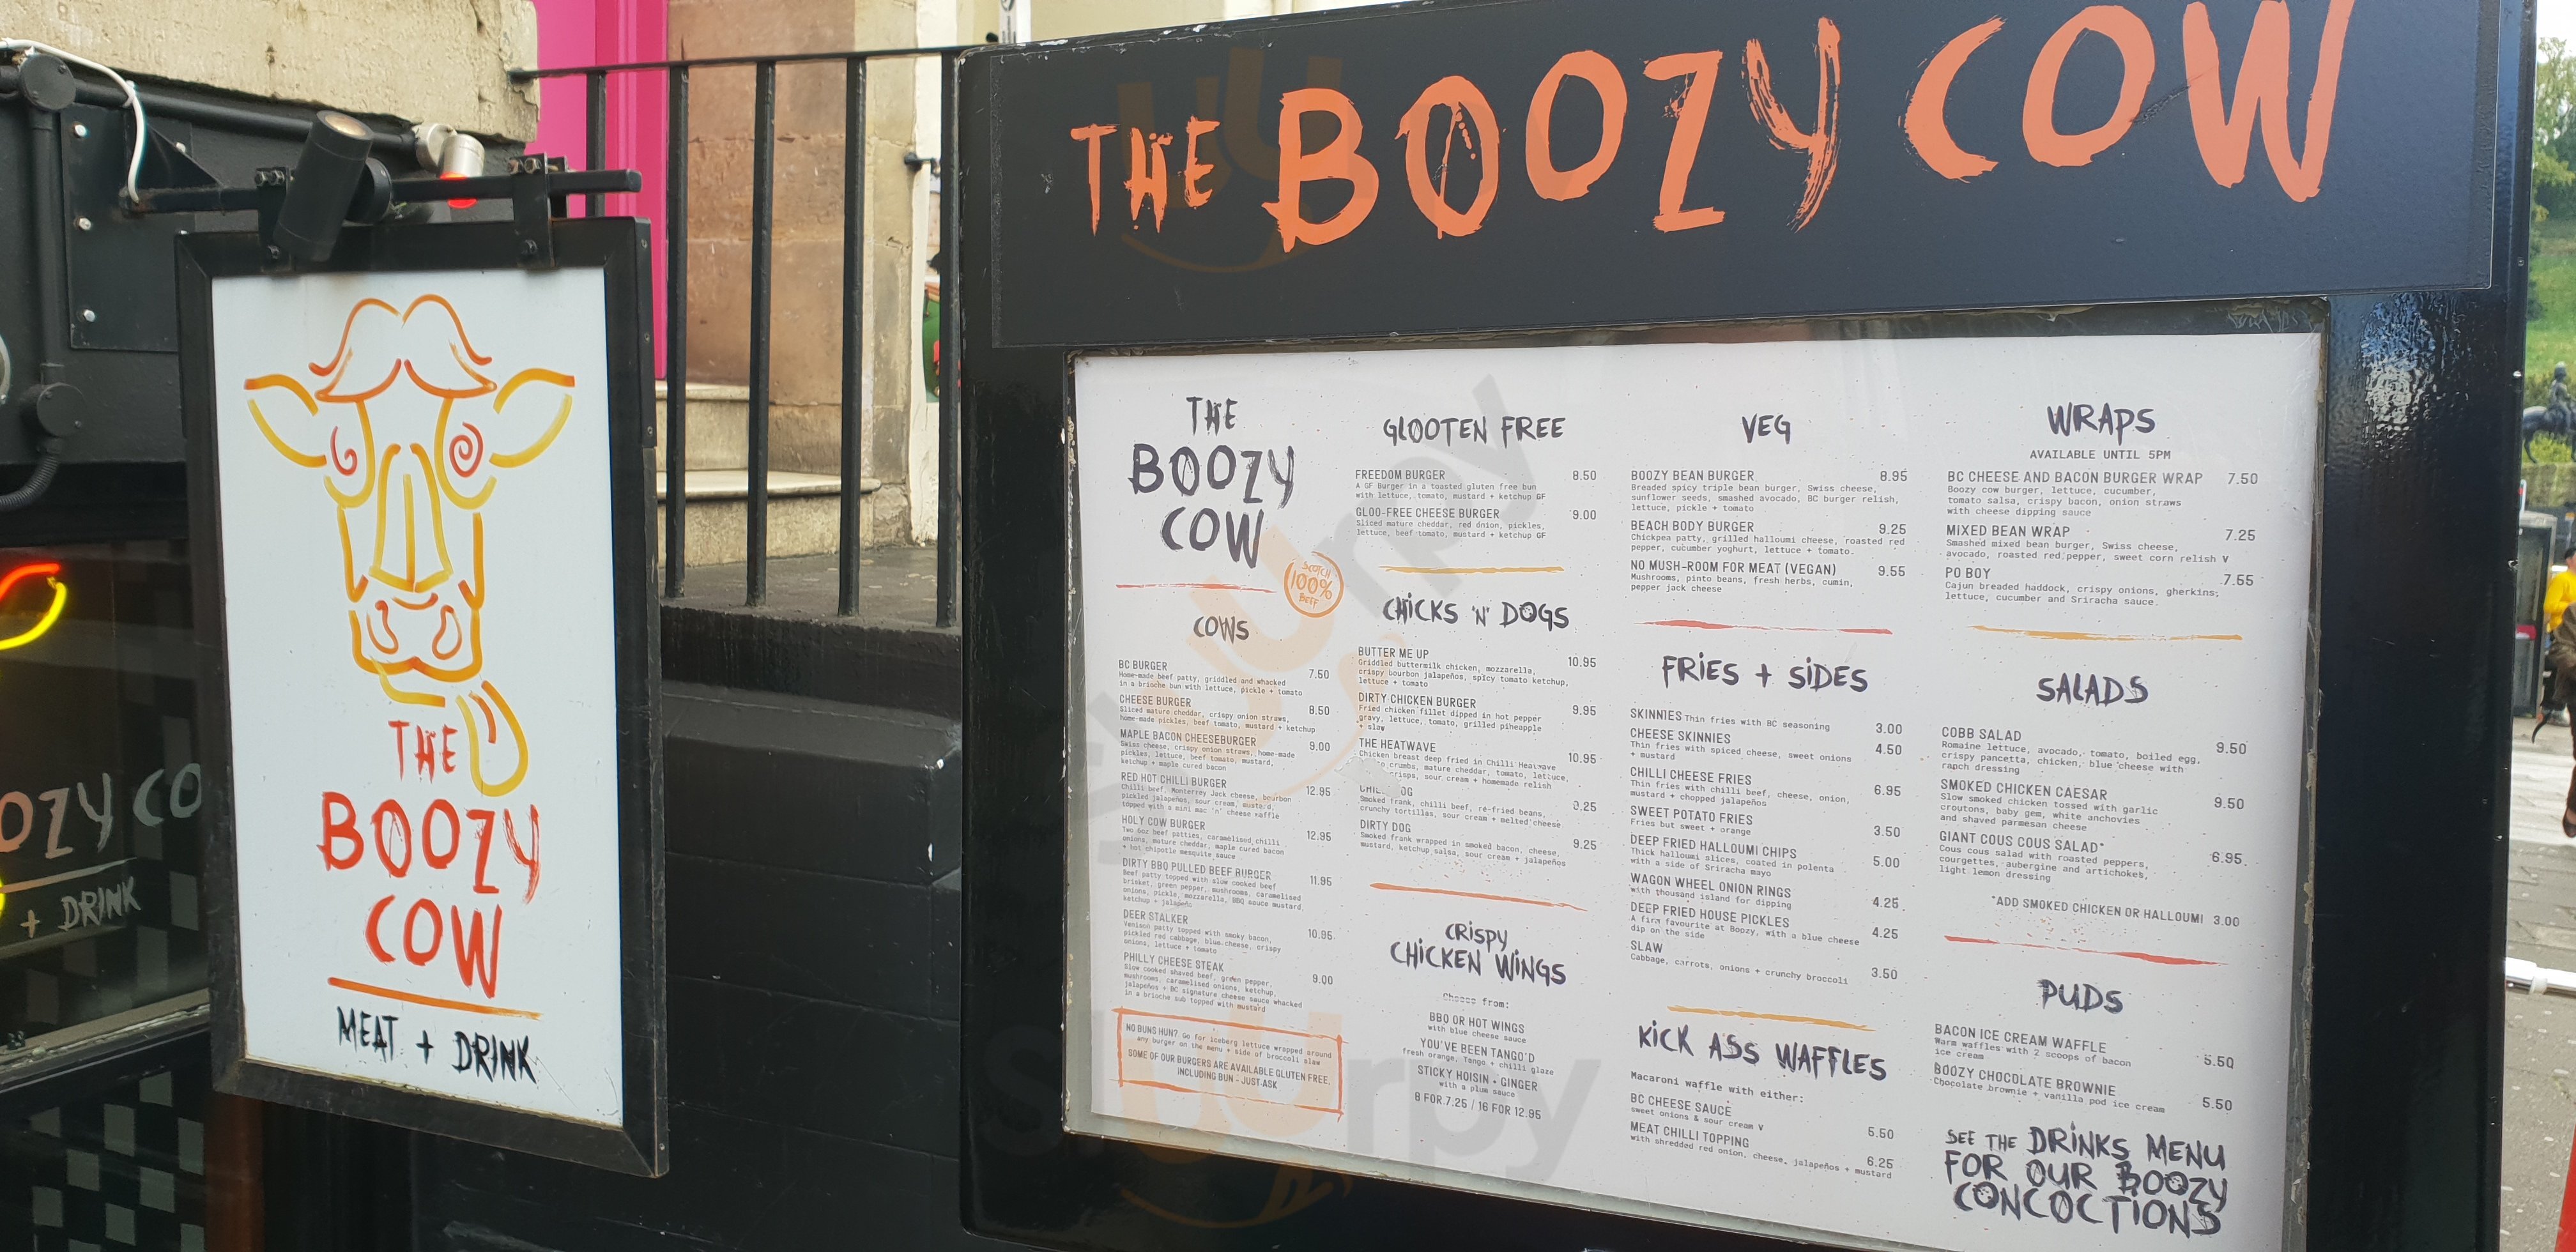 THE BOOZY COW
THE
BOOZY
COW
MEAT + DRINK
OZY CO
+ DRINK
THE
BOOZY
COW
SCOTCH
100%
BEEF
COWS
BC BURGER 7.50
Home-made beef patty, griddled and whacked
in a brioche bun with lettuce, pickle + tomato
CHEESE BURGER 8.50
Sliced mature cheddar, crispy onion straws,
home-made pickles, beef tomato, mustard + ketchup
MAPLE BACON CHEESEBURGER 9.00
Swiss cheese, crispy onion straws, home-made
pickles, lettuce, beef tomato, mustard,
ketchup + maple cured bacon
RED HOT CHILLI BURGER 12.95
Chilli beef, Monterrey Jack cheese, bourbon
pickled jalapeños, sour cream, mustard,
topped with a mini mac 'n' cheese waffle
HOLY COW BURGER 12.95
Two 6oz beef patties, caramelised chilli
onions, mature cheddar, maple cured bacon
+ hot chipotle mesquite sauce
DIRTY BBQ PULLED BEEF BURGER 11.95
Beef patty topped with slow cooked beef
brisket, green pepper, mushrooms, caramelised
onions, pickle, mozzarella, BBQ sauce mustard,
ketchup + jalapeño
DEER STALKER 10.95
Venison patty topped with smoky bacon,
pickled red cabbage, blue cheese, crispy
onions, lettuce + tomato
PHILLY CHEESE STEAK 9.00
Slow cooked shaved beef, green pepper,
mushrooms, caramelised onions, ketchup,
jalapeños + BC signature cheese sauce whacked
in a brioche sub topped with mustard
NO BUNS HUN? Go for iceberg lettuce wrapped around
any burger on the menu + side of broccoli slaw
SOME OF OUR BURGERS ARE AVAILABLE GLUTEN FREE,
INCLUDING BUN - JUST ASK
GLOOTEN FREE
FREEDOM BURGER 8.50
A GF Burger in a toasted gluten free bun
with lettuce, tomato, mustard + ketchup GF
GLOO-FREE CHEESE BURGER 9.00
Sliced mature cheddar, red onion, pickles,
lettuce, beef tomato, mustard + ketchup GF
CHICKS 'N' DOGS
BUTTER ME UP 10.95
Griddled buttermilk chicken, mozzarella,
crispy bourbon jalapeños, spicy tomato ketchup,
lettuce + tomato
DIRTY CHICKEN BURGER 9.95
Fried chicken fillet dipped in hot pepper
gravy, lettuce, tomato, grilled pineapple
+ slaw
THE HEATWAVE 10.95
Chicken breast deep fried in Chilli Heatwave
crumbs, mature cheddar, tomato, lettuce,
crisps, sour cream + homemade relish
Smoked frank, chilli beef, re-fried beans,
crunchy tortillas, sour cream + melted cheese
DIRTY DOG 9.25
Smoked frank wrapped in smoked bacon, cheese,
mustard, ketchup salsa, sour cream + jalapeños
CRISPY
CHICKEN WINGS
Choose from:
BBQ OR HOT WINGS
with blue cheese sauce
YOU'VE BEEN TANGO'D
fresh orange, Tango + chilli glaze
STICKY HOISIN + GINGER
with a plum sauce
8 FOR 7.25 / 16 FOR 12.95
VEG
BOOZY BEAN BURGER 8.95
Breaded spicy triple bean burger, Swiss cheese,
sunflower seeds, smashed avocado, BC burger relish,
lettuce, pickle + tomato
BEACH BODY BURGER 9.25
Chickpea patty, grilled halloumi cheese, roasted red
pepper, cucumber yoghurt, lettuce + tomato.
NO MUSH-ROOM FOR MEAT (VEGAN) 9.55
Mushrooms, pinto beans, fresh herbs, cumin,
pepper jack cheese
FRIES + SIDES
SKINNIES Thin fries with BC seasoning 3.00
CHEESE SKINNIES 4.50
Thin fries with spiced cheese, sweet onions
+ mustard
CHILLI CHEESE FRIES 6.95
Thin fries with chilli beef, cheese, onion,
mustard + chopped jalapeños
SWEET POTATO FRIES 3.50
Fries but sweet + orange
DEEP FRIED HALLOUMI CHIPS 5.00
Thick halloumi slices, coated in polenta
with a side of Sriracha mayo
WAGON WHEEL ONION RINGS 4.25
with thousand island for dipping
DEEP FRIED HOUSE PICKLES 4.25
A firm favourite at Boozy, with a blue cheese
dip on the side
SLAW 3.50
Cabbage, carrots, onions + crunchy broccoli
KICK ASS WAFFLES
Macaroni waffle with either:
BC CHEESE SAUCE 5.50
sweet onions & sour cream V
MEAT CHILLI TOPPING 6.25
with shredded red onion, cheese, jalapeños + mustard
WRAPS
AVAILABLE UNTIL 5PM
BC CHEESE AND BACON BURGER WRAP 7.50
Boozy cow burger, lettuce, cucumber,
tomato salsa, crispy bacon, onion straws
with cheese dipping sauce
MIXED BEAN WRAP 7.25
Smashed mixed bean burger, Swiss cheese,
avocado, roasted red pepper, sweet corn relish V
PO BOY 7.55
Cajun breaded haddock, crispy onions, gherkins,
lettuce, cucumber and Sriracha sauce.
SALADS
COBB SALAD 9.50
Romaine lettuce, avocado, tomato, boiled egg,
crispy pancetta, chicken, blue cheese with
ranch dressing
SMOKED CHICKEN CAESAR 9.50
Slow smoked chicken tossed with garlic
croutons, baby gem, white anchovies
and shaved parmesan cheese
GIANT COUS COUS SALAD* 6.95
Cous cous salad with roasted peppers,
courgettes, aubergine and artichokes,
light lemon dressing
*ADD SMOKED CHICKEN OR HALLOUMI 3.00
PUDS
BACON ICE CREAM WAFFLE 5.50
Warm waffles with 2 scoops of bacon
ice cream
BOOZY CHOCOLATE BROWNIE 5.50
Chocolate brownie + vanilla pod ice cream
SEE THE DRINKS MENU
FOR OUR BOOZY
CONCOCTIONS
Slurpy